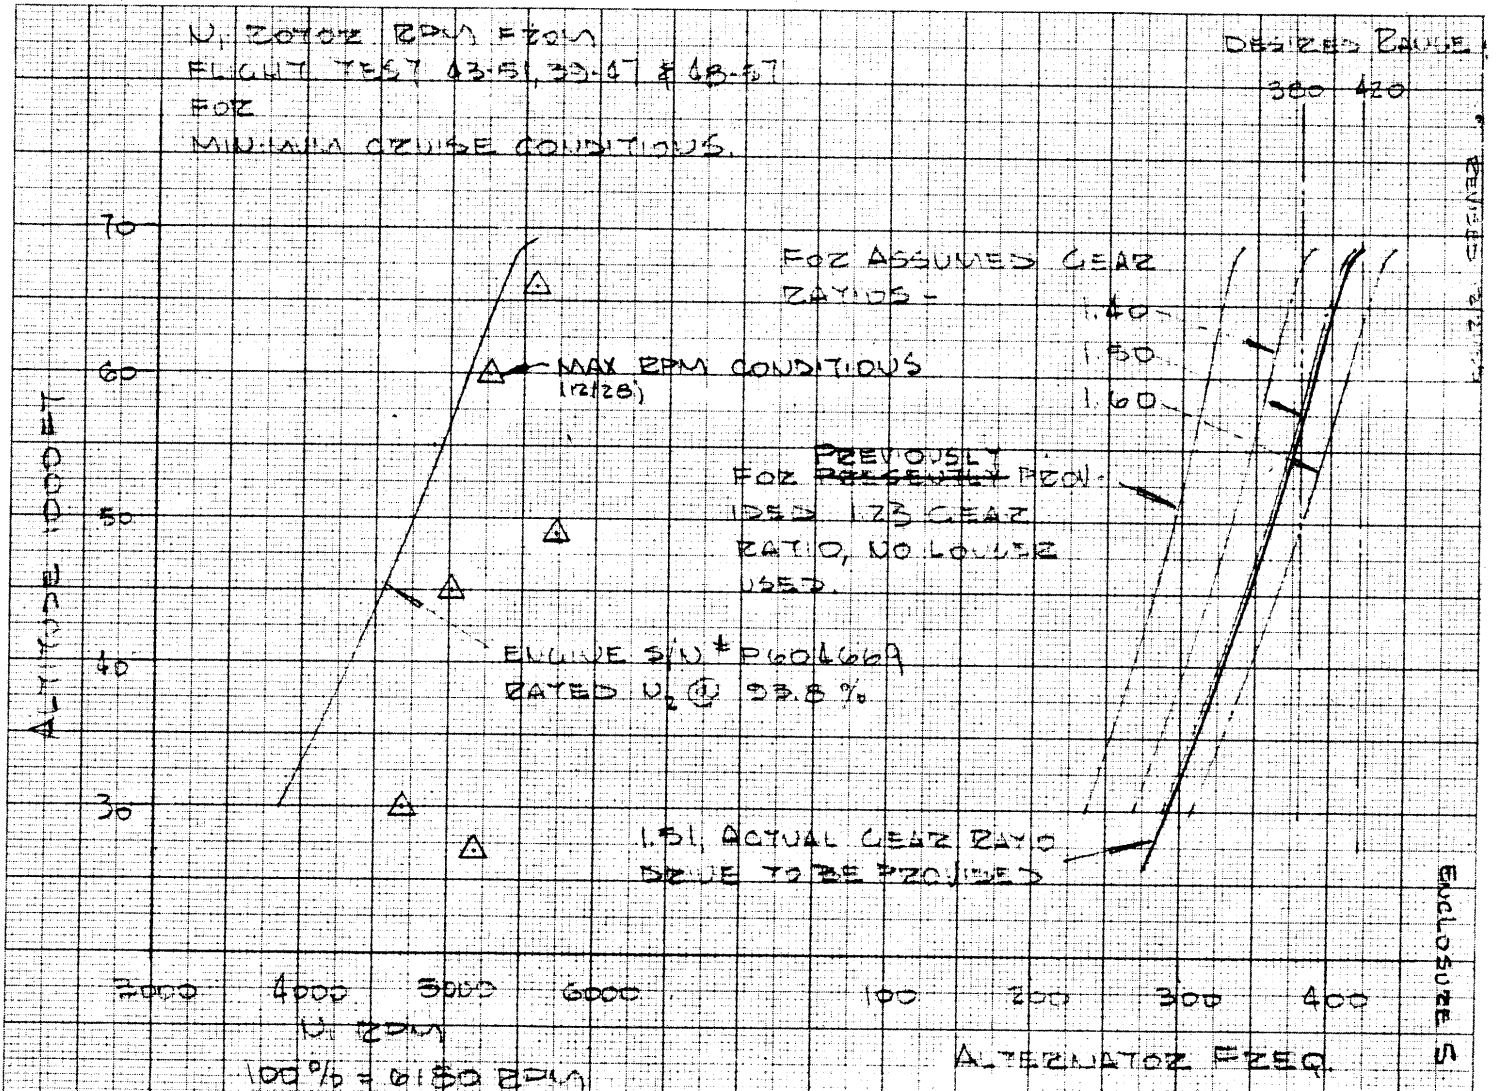 N₁ ROTOR RPM FROM
FLIGHT TEST 43-51, 39-47 & 48-57
FOR
MINIMUM CRUISE CONDITIONS.
DESIRED RANGE
380 420
REVISED
70
60
50
40
30
ALTITUDE 1000 FT
MAX RPM CONDITIONS
(12/28)
FOR ASSUMED GEAR
RATIOS -
1.40
1.50
1.60
PREVIOUSLY
FOR PRESENTLY PROV-
IDED 1.23 GEAR
RATIO, NO LOUVER
USED.
ENGINE S/N # P604669
RATED N₂ @ 93.8 %
1.51, ACTUAL GEAR RATIO
DRIVE TO BE PROVIDED
3000 4000 5000 6000
N₁ RPM
100% = 6180 RPM
100 200 300 400
ALTERNATOR FREQ.
ENCLOSURE 5